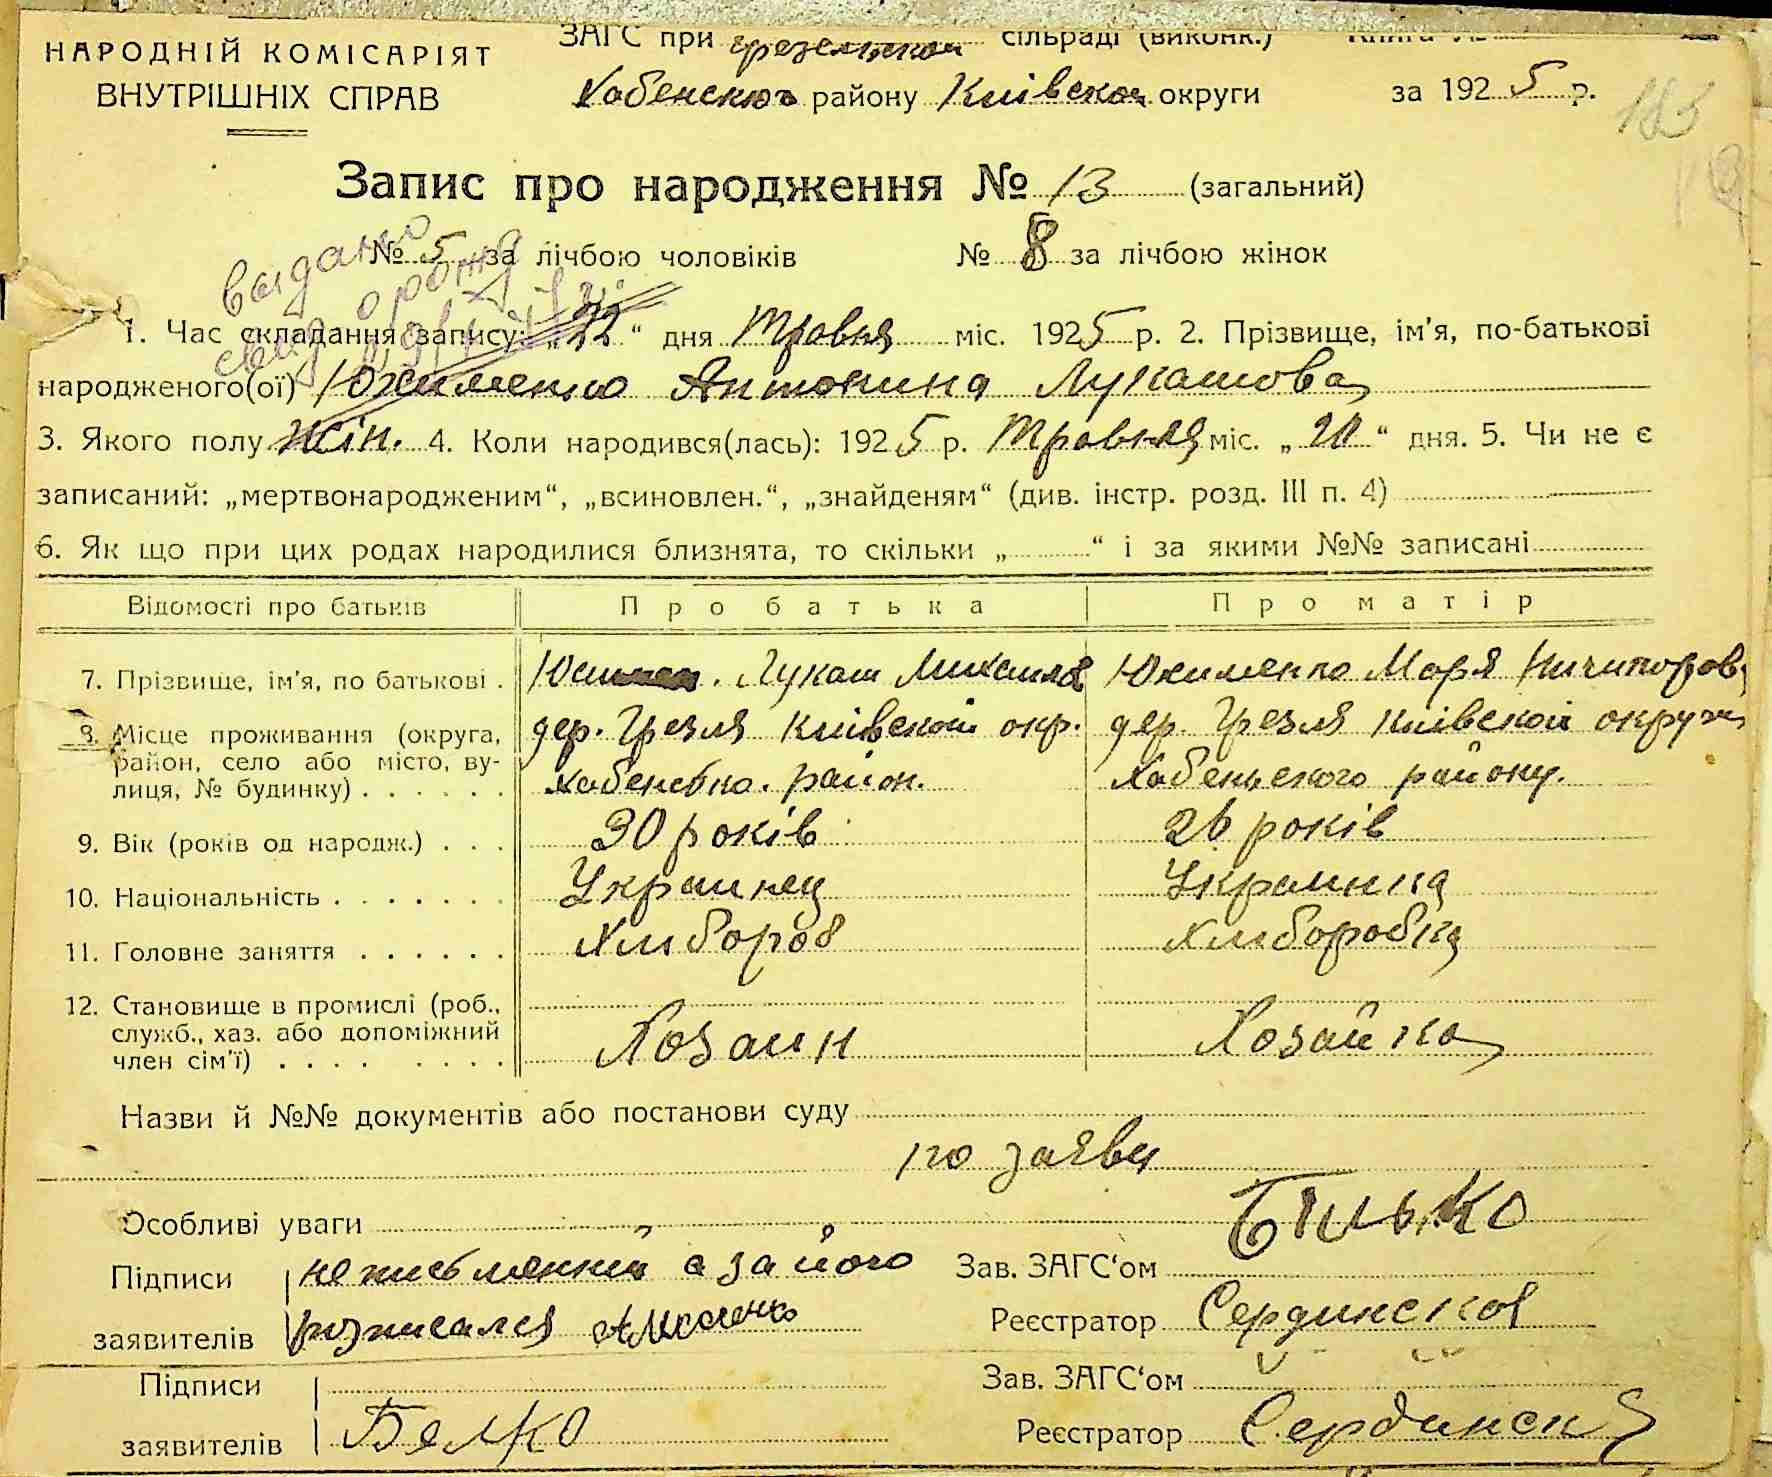 НАРОДНІЙ КОМІСАРІЯТ
ВНУТРІШНІХ СПРАВ
ЗАГС при сільраді (виконк.)
району Київской округи за 1925 р.
Запис про народження № 13 (загальний)
№ 5 за лічбою чоловіків № 8 за лічбою жінок
выдано
1. Час складання запису: „22“ дня Травня міс. 1925 р. 2. Прізвище, ім'я, по-батькові
народженого(ої) Юхименко Антонина Лукашова
3. Якого полу жін. 4. Коли народився(лась): 1925 р. Травня міс. „20“ дня. 5. Чи не є
записаний: „мертвонародженим“, „всиновлен.“, „знайденям“ (див. інстр. розд. III п. 4)
6. Як що при цих родах народилися близнята, то скільки „ “ і за якими №№ записані
Відомості про батьків Про батька Про матір
7. Прізвище, ім'я, по батькові . Лукаш Михайлов Юхименко Маря Ничипоров
8. Місце проживання (округа, дер. Грезля Київской окр. дер. Грезля Київской округи
район, село або місто, ву-
лиця, № будинку) . . . . . . район. Хабенського району.
9. Вік (років од народж.) . . . 30 років 26 років
10. Національність . . . . . . . Украинец Украинка
11. Головне заняття . . . . . . Хлибороб Хлиборобка
12. Становище в промислі (роб.,
служб., хаз. або допоміжний
член сім'ї) . . . . . . . . Хозаин Хозайка
Назви й №№ документів або постанови суду
по заяви
Особливі уваги
Підписи неписьменний а за його Зав. ЗАГС'ом Билько
заявителів розписался Реєстратор
Підписи Зав. ЗАГС'ом
заявителів Белко Реєстратор